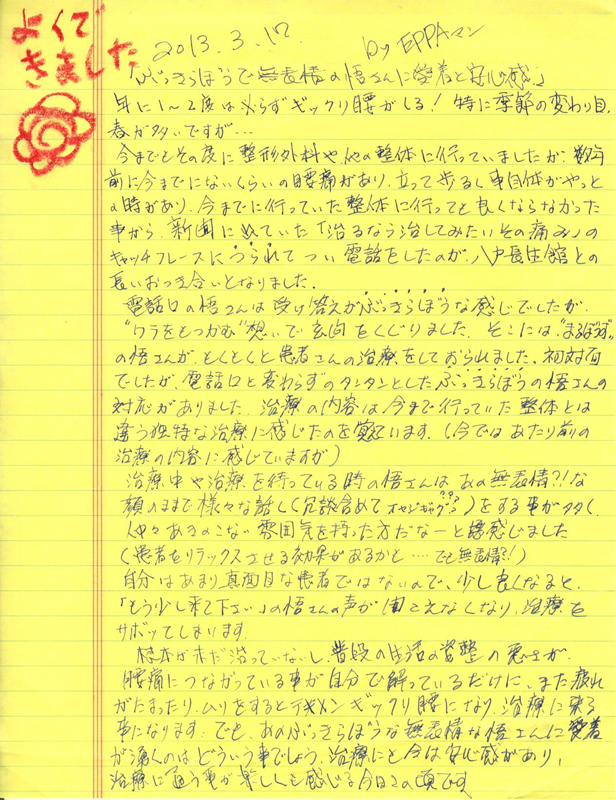 よくで
きました
2013.3.17
by EPPAマン
「ぶっきらぼうで無表情の悟さんに愛着と安心感」
年に1～2度は必らずギックリ腰がでる！特に季節の変わり目、
春が多いですが…
今までもその度に整形外科や他の整体に行っていましたが、数年
前に今までにないくらいの腰痛があり、立って歩るく事自体がやっと
の時があり、今までに行っていた整体に行っても良くならなかった
事から、新聞にぬていた「治るなら治してみたいその痛み」の
キャッチフレーズにつられてつい電話をしたのが、八戸長生館との
長いおつき合いとなりました。
電話口の悟さんは受け答えがぶっきらぼうな感じでしたが、
“ワラをもつかむ”想いで玄関をくぐりました。そこには、“まるぼうず”
の悟さんが、もくもくと患者さんの治療をしておられました。初対面
でしたが、電話口と変わらずのタンタンとしたぶっきらぼうの悟さんの
対応がありました。治療の内容は今まで行っていた整体とは
違う独特な治療に感じたのを覚えています。（今ではあたり前の
治療の内容に感じていますが）
治療中や治療を待っている時の悟さんは、あの無表情?!な
顔のままで様々な話し（冗談含めてオヤジギャグ???）をする事が多く、
中々あきのこない雰囲気を持った方だなーと感じました
（患者をリラックスさせる効果があるかと…でも無表情?!）
自分はあまり真面目な患者ではないので、少し良くなると、
「もう少し来て下さい」の悟さんの声が聞こえなくなり、治療を
サボってしまいます。
根本が未だ治っていないし、普段の生活の姿整の悪さが、
腰痛につながっている事が自分で解っているだけに、また疲れ
がたまったり、ムリをするとテキメンギックリ腰になり、治療に来る
事になります。でも、あのぶっきらぼうな無表情な悟さんに愛着
が湧くのは、どういう事でしょう、治療にも今は安心感があり、
治療に通う事が楽しくも感じる今日この頃です